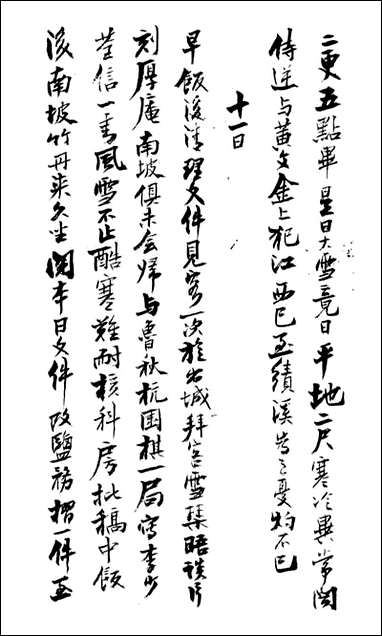 二更五點畢是日大雪竟日平地二尺寒冷異常閱
侍逆与黃文金上犯江西已至績溪甚之憂灼不已
十一日
早飯後清理文件見客一次於出城拜客雪琴晤談片
刻厚庵南坡俱未会归与魯秋杭围棋一局寫李少
荃信一封風雪不止酷寒難耐核科房批稿中飯
後南坡竹丹来久坐閱本日文件改鹽務摺一件至